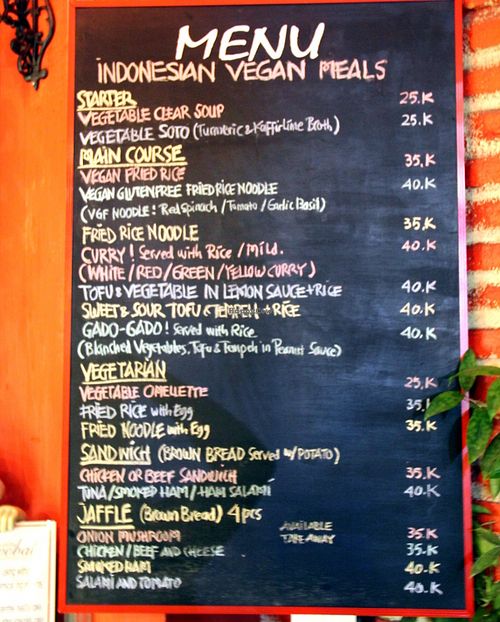 MENU
INDONESIAN VEGAN MEALS
STARTER
VEGETABLE CLEAR SOUP 25.K
VEGETABLE SOTO (Turmeric & Kaffir Lime Broth) 25.K
MAIN COURSE
VEGAN FRIED RICE 35.K
VEGAN GLUTEN FREE FRIED RICE NOODLE 40.K
(VGF NOODLE: Red Spinach / Tomato / Garlic Basil)
FRIED RICE NOODLE 35.K
CURRY! Served with Rice / Mild. 40.K
(WHITE / RED / GREEN / YELLOW CURRY)
TOFU & VEGETABLE IN LEMON SAUCE + RICE 40.K
SWEET & SOUR TOFU & TEMPEH + RICE 40.K
GADO-GADO! Served with Rice 40.K
(Blanched Vegetables, Tofu & Tempeh in Peanut Sauce)
VEGETARIAN
VEGETABLE OMELLETTE 25.K
FRIED RICE with Egg 35.K
FRIED NOODLE with Egg 35.K
SANDWICH (BROWN BREAD Served w/ POTATO)
CHICKEN OR BEEF SANDWICH 35.K
TUNA / SMOKED HAM / HAM SALAMI 40.K
JAFFLE (Brown Bread) 4 pcs
AVAILABLE
TAKE AWAY
ONION MUSHROOM 35.K
CHICKEN / BEEF AND CHEESE 35.K
SMOKED HAM 40.K
SALAMI AND TOMATO 40.K